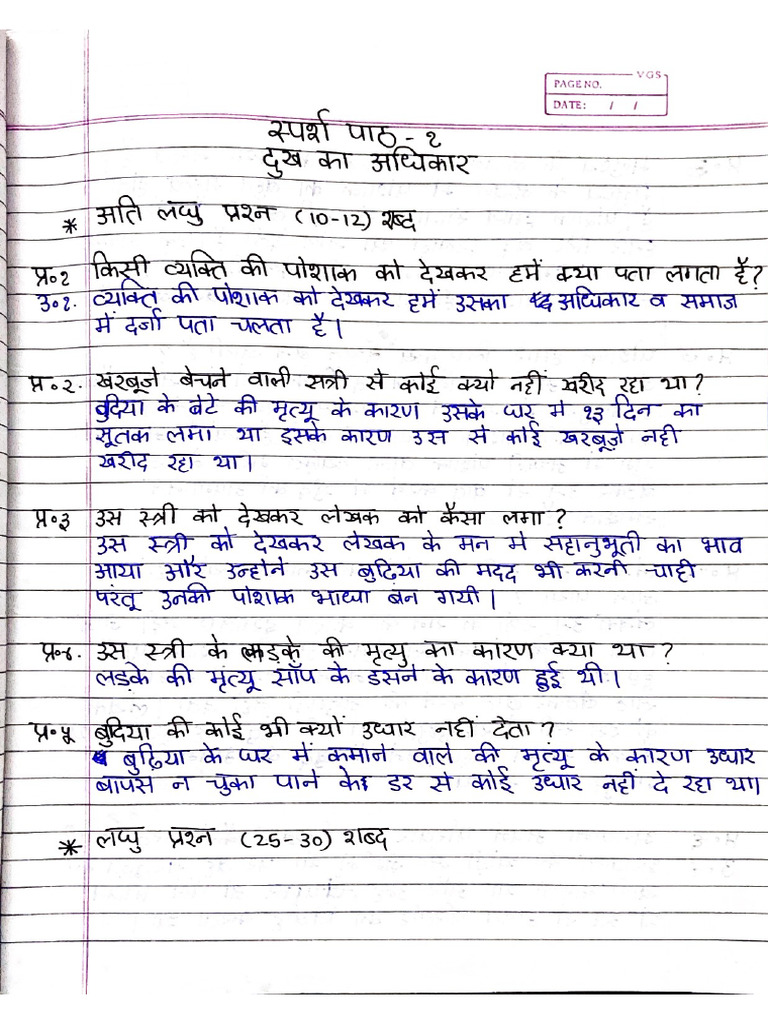 VGS
PAGE NO.
DATE: / /
स्पर्श पाठ - १
दुख का अधिकार
* अति लघु प्रश्न (10-12) शब्द
प्र०१ किसी व्यक्ति की पोशाक को देखकर हमें क्या पता लगता है?
उ०१. व्यक्ति की पोशाक को देखकर हमें उसका अधिकार व समाज
में दर्जा पता चलता है।
प्र०२. खरबूजे बेचने वाली सत्री से कोई क्यो नहीं खरीद रहा था?
बुदिया के बेटे की मृत्यू के कारण उसके घर मे १३ दिन का
सूतक लगा था इसके कारण उस से कोई खरबूजे नही
खरीद रहा था।
प्र०३ उस स्त्री को देखकर लेखक को कैसा लगा?
उस स्त्री को देखकर लेखक के मन मे सहानुभूती का भाव
आया और उन्होने उस बुढ़िया की मदद भी करनी चाही
परंतू उनकी पोशाक भाधा बन गयी।
प्र०४. उस स्त्री के लड़के की मृत्यु का कारण क्या था?
लड़के की मृत्यू साँप के डसने के कारण हुई थी।
प्र०५ बुदिया की कोई भी क्यों उधार नहीं देता?
बुढ़िया के घर में कमाने वाले की मृत्यू के कारण उधार
वापस न चुका पाने के डर से कोई उधार नहीं दे रहा था।
* लघु प्रश्न (25-30) शब्द